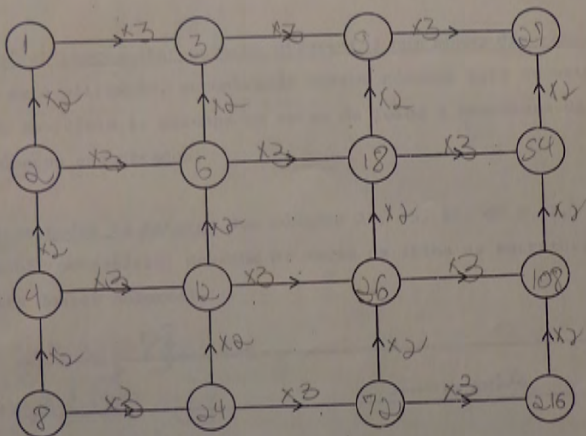 1 x3 3 x3 9 x3 27
x2 x2 x2 x2
2 x3 6 x3 18 x3 54
x2 x2 x2 x2
4 x3 12 x3 36 x3 108
x2 x2 x2 x2
8 x3 24 x3 72 x3 216